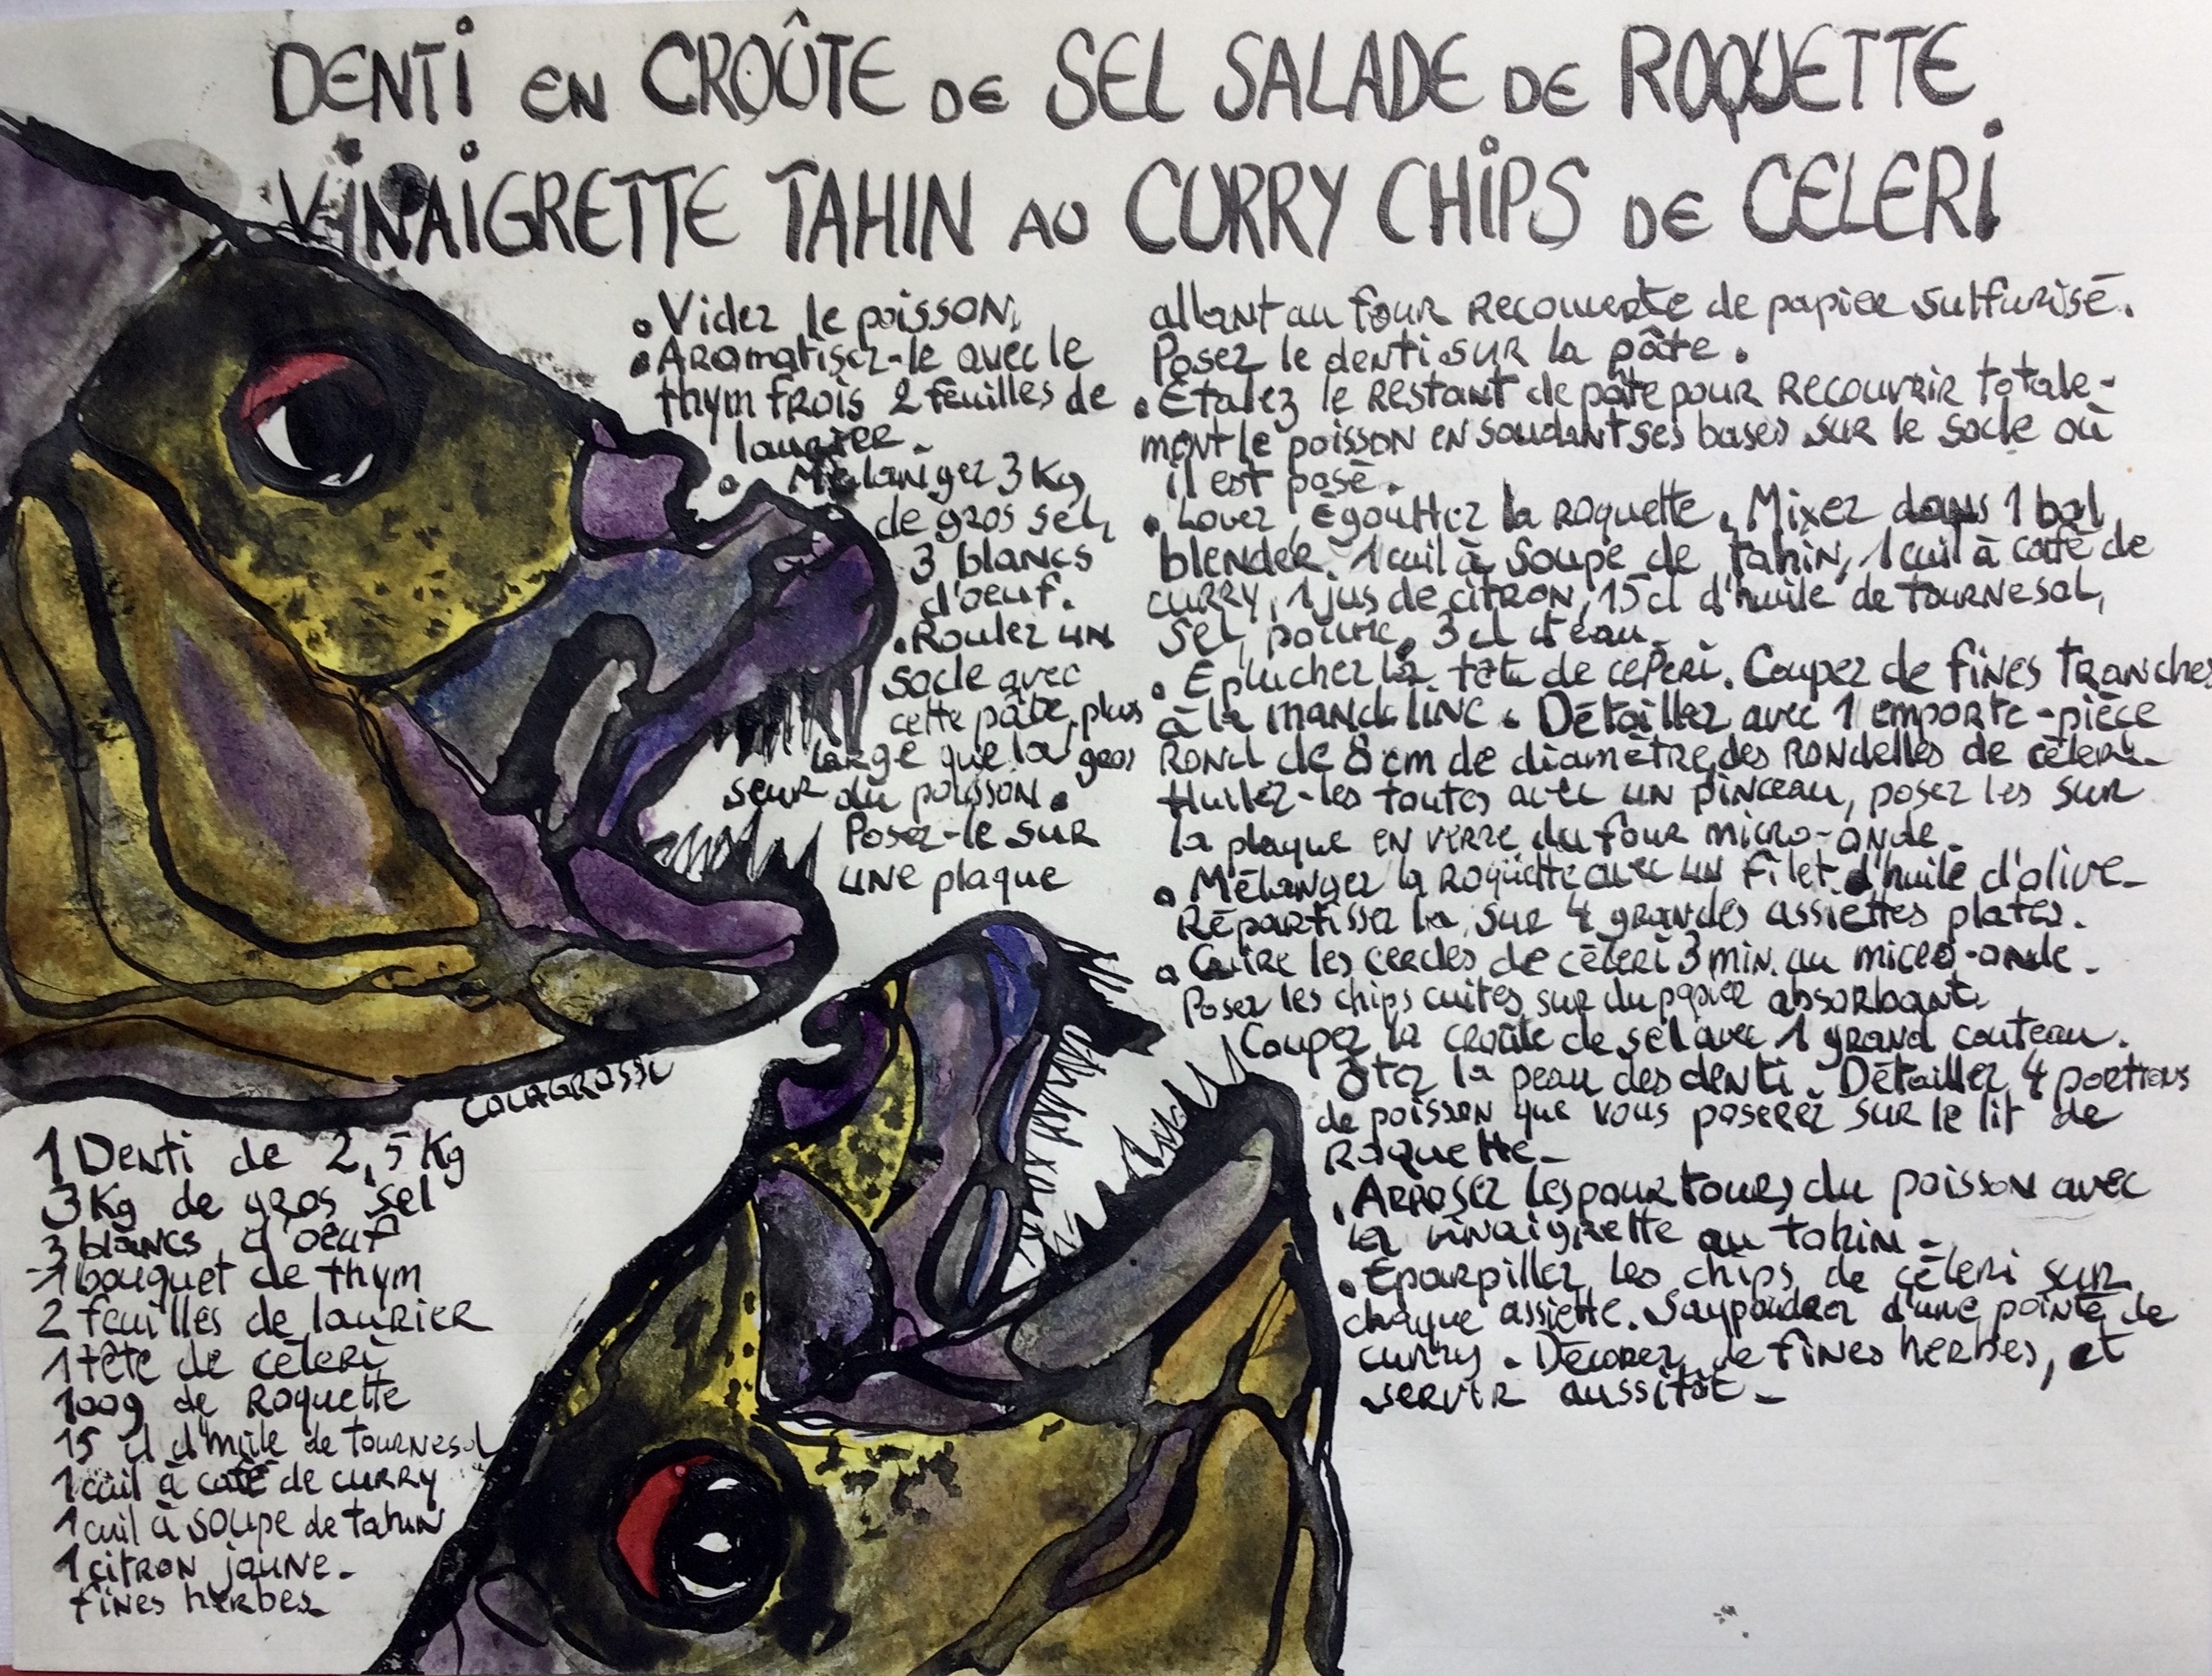 DENTI EN CROÛTE DE SEL SALADE DE ROQUETTE
VINAIGRETTE TAHIN AU CURRY CHIPS DE CELERI
• Videz le poisson.
• Aromatisez-le avec le
thym frais 2 feuilles de
laurier.
• Mélangez 3 Kg
de gros sel,
3 blancs
d'oeuf.
• Roulez un
socle avec
cette pâte, plus
large que la gros
seur du poisson.
Posez-le sur
une plaque
allant au four recouverte de papier sulfurisé.
Posez le denti sur la pâte.
• Étalez le restant de pâte pour recouvrir totale-
ment le poisson en soudant ses bases sur le socle où
il est posé.
• Lavez, égouttez la roquette. Mixez dans 1 bol
blender 1 cuil à soupe de tahin, 1 cuil à café de
curry, 1 jus de citron, 15 cl d'huile de tournesol,
sel, poivre, 3 cl d'eau.
• Épluchez la tête de céleri. Coupez de fines tranches
à la mandoline. Détaillez avec 1 emporte-pièce
rond de 8 cm de diamètre, des rondelles de céleri.
Huilez-les toutes avec un pinceau, posez les sur
la plaque en verre du four micro-onde.
• Mélangez la roquette avec un filet d'huile d'olive.
Répartissez la, sur 4 grandes assiettes plates.
• Cuire les cercles de céleri 3 min. au micro-onde.
Posez les chips cuites sur du papier absorbant.
Coupez la croûte de sel avec 1 grand couteau.
Ôtez la peau des denti. Détaillez 4 portions
de poisson que vous poserez sur le lit de
roquette.
• Arrosez les pourtours du poisson avec
la vinaigrette au tahin.
• Éparpillez les chips de céleri sur
chaque assiette. Saupoudrer d'une pointe de
curry. Décorez de fines herbes, et
servir aussitôt.
COLAGROSSI
1 Denti de 2,5 Kg
3 Kg de gros sel
3 blancs d'oeuf
1 bouquet de thym
2 feuilles de laurier
1 tête de céleri
100g de Roquette
15 cl d'huile de tournesol
1 cuil à café de curry
1 cuil à soupe de tahin
1 citron jaune.
fines herbes